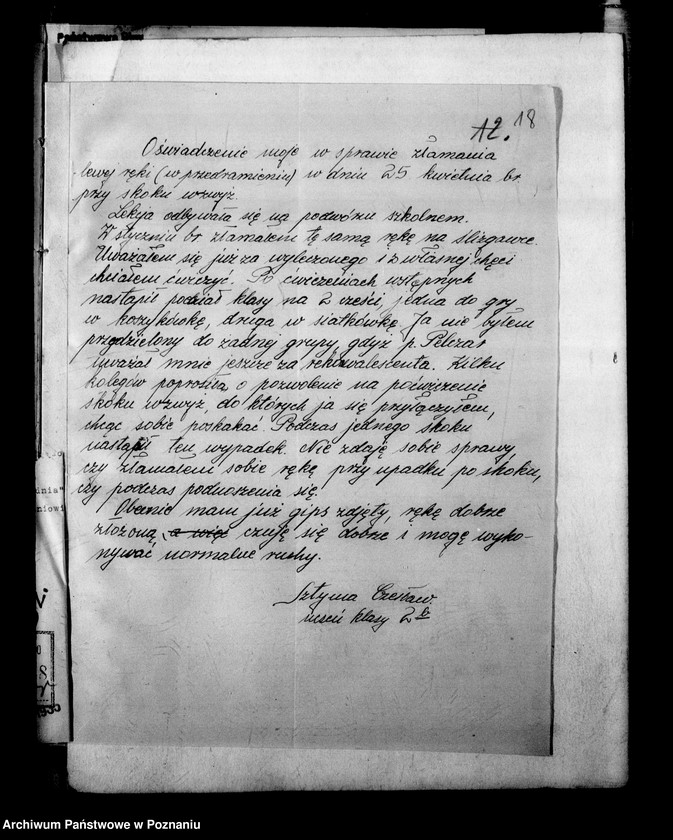 12. 18
Oświadczenie moje w sprawie złamania
lewej ręki (w przedramieniu) w dniu 25 kwietnia br.
przy skoku wzwyż.
Lekcja odbywała się na podwórzu szkolnem.
W styczniu br złamałem tę samą rękę na ślizgawce.
Uważałem się już za wyleczonego i z własnej chęci
chciałem ćwiczyć. Po ćwiczeniach wstępnych
nastąpił podział klasy na 2 cześci, jedna do gry
w koszykówkę, druga w siatkówkę. Ja nie byłem
przydzielony do żadnej grupy, gdyż p. Pelczar
uważał mnie jeszcze za rekonwalescenta. Kilku
kolegów poprosiło o pozwolenie na poćwiczenie
skoku wzwyż, do których ja się przyłączyłem,
chcąc sobie poskakać. Podczas jednego skoku
nastąpił ten wypadek. Nie zdaję sobie sprawy,
czy złamałem sobie rękę przy upadku po skoku,
czy podczas podnoszenia się.
Obecnie mam już gips zdjęty, rękę dobrze
złożoną, a więc czuję się dobrze i mogę wyko-
nywać normalne ruchy.
Sztyma Czesław.
uczeń klasy 2 b
Archiwum Państwowe w Poznaniu